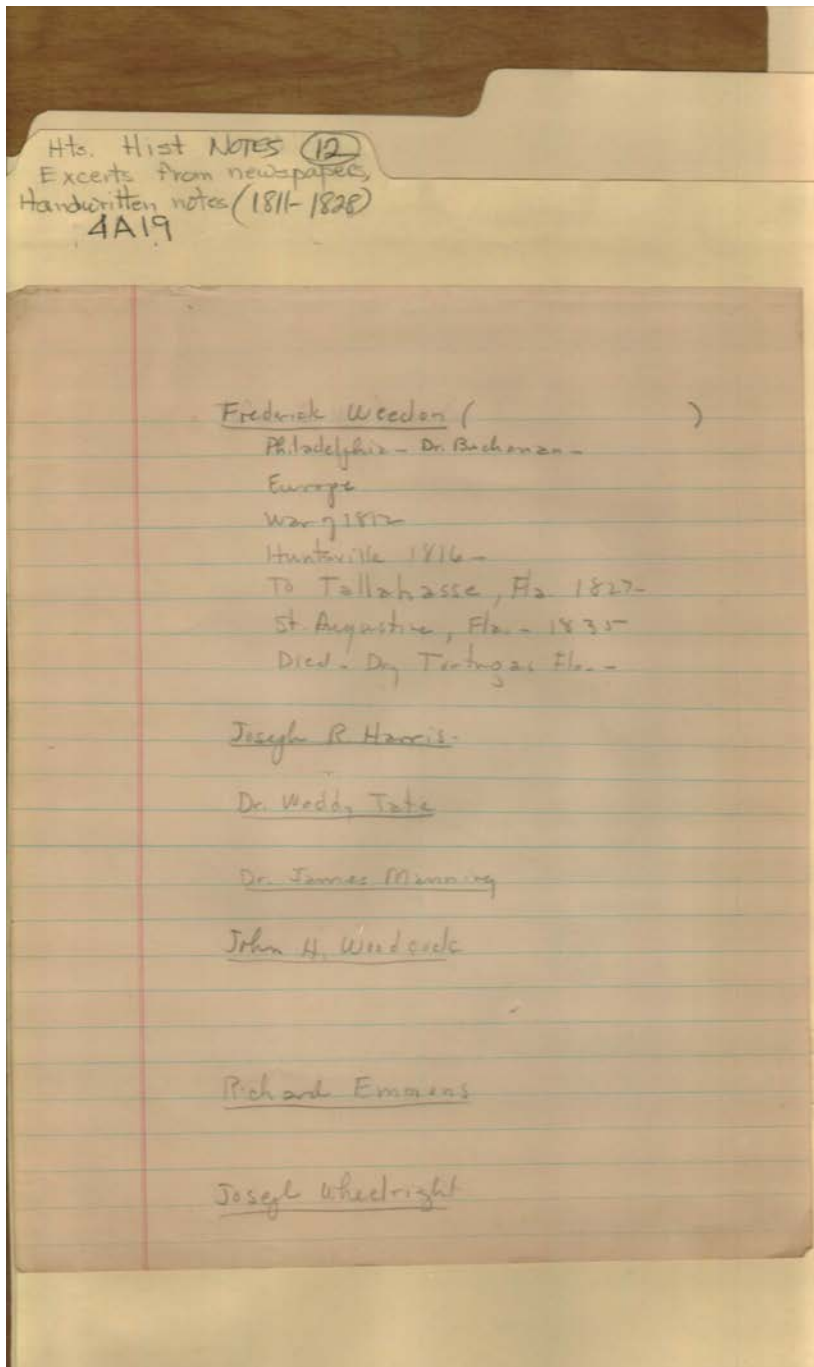 Hts. Hist NOTES (12)
Excerts from newspapers,
Handwritten notes (1811-1828)
4A19
Frederick Weedon ( )
Philadelphia - Dr. Buchanan -
Europe
War of 1812
Huntsville 1816 -
To Tallahasse, Fla. 1827-
St. Augustine, Fla. - 1835
Died - Dry Tortugas Fla. -
Joseph R Harris-
Dr. Waddy Tate
Dr. James Manning
John H. Woodcock
Richard Emmens
Joseph Wheelright